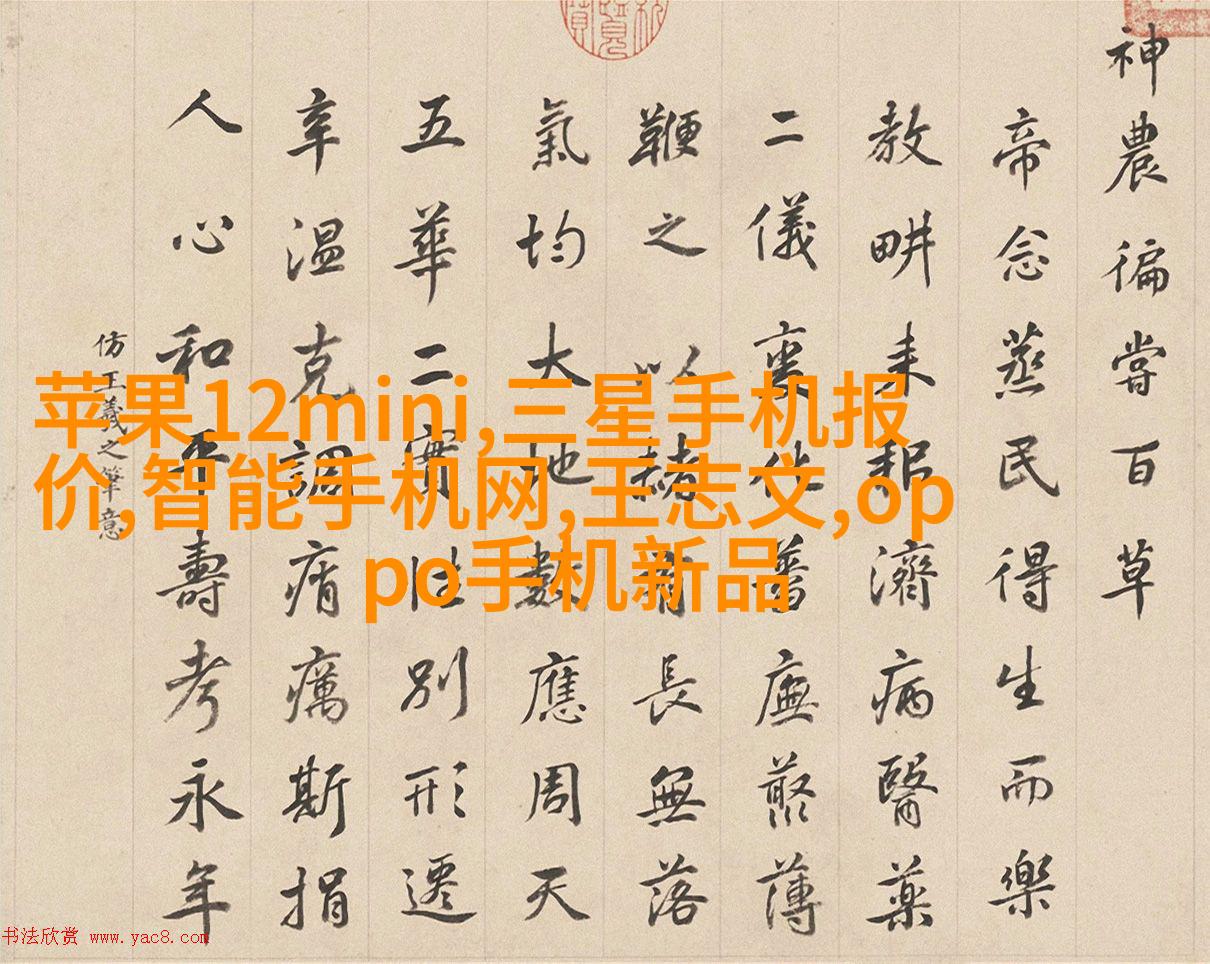 神農徧嘗百草
帝念蒸民得生而樂
教畊耒耜濟病醫藥
二儀化普廡藂薄
鞭之以赭有長無落
氣均大地數應周天
五華二實性別形遷
辛温克調痟癘斯捐
人心和平壽考永年
仿王羲之筆意
苹果12mini,三星手机报
价,智能手机网,王志文,op
po手机新品
书法欣赏 www.yac8.com